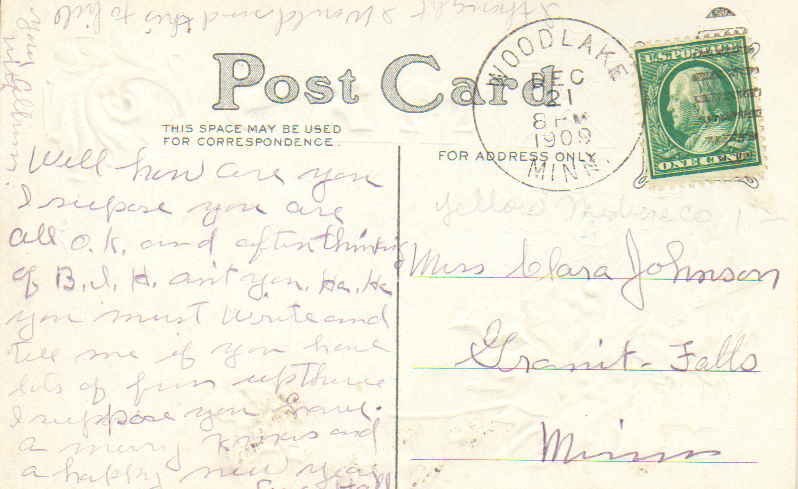 I thought I would send this to fill
your
up Album.
Post Card
THIS SPACE MAY BE USED
FOR CORRESPONDENCE.
FOR ADDRESS ONLY
WOODLAKE
DEC
21
8 PM
1909
MINN.
U.S. POSTAGE
ONE CENT
Well how are you
I supose you are
all O.K. and often thinking
of B.I.H. aint you, Ha, Ha
you must write and
tell me if you have
lots of fun up there
I suppose you have.
a merry Xmas and
a happy new year
Yellow Medicine Co
Miss Clara Johnson
Granit-Falls
Minn